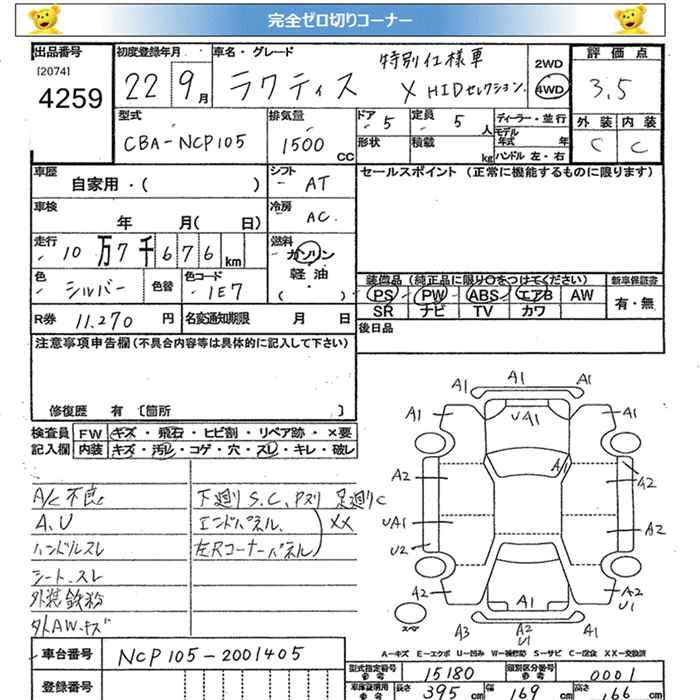 完全ゼロ切りコーナー
出品番号 初度登録年月 車名・グレード 特別仕様車 2WD 評価点
[2074] 4259 22年 9月 ラクティス X HIDセレクション 4WD 3.5
型式 排気量 ドア 5 定員 5人 ディーラー・並行 外装 内装
CBA-NCP105 1500CC 形状 積載 kg モデル年式 年 C C
ハンドル 左・右
車歴 自家用・( ) シフト AT セールスポイント (正常に機能するものに限ります)
車検 年 月( 日) 冷房 AC.
走行 10万7千676km 燃料 ガソリン
軽油
( )
色 シルバー 色替 色コード 1E7 装備品 (純正品に限り○をつけてください) 新車保証書
PS PW ABS エアB AW 有・無
SR ナビ TV カワ
R券 11.270円 名変通知期限 月 日 後日品
注意事項申告欄 (不具合内容等は具体的に記入して下さい)
修復歴 有 [箇所 ]
検査員 FW キズ・飛石・ヒビ割・リペア跡・×要
記入欄 内装 キズ・汚レ・コゲ・穴・スレ・キレ・破レ
A/C 不良 下廻り S.C、Pズリ 足廻りC
A、U エンドパネル、
ハンドルスレ 左尺コーナーパネル XX
シート、スレ
外装鉄粉
外AW、キズ
A1 A1 A1
A1 UA1 A1
A1
A2 A2
UA1 A2
U2
A2 A1 A2
U1
スペ
A3 A2 A1
U1
A-キズ E-エクボ U-凹み W-補修跡 S-サビ C-腐食 XX-交換済
車台番号 NCP105-2001405
型式指定番号 参考 15180 類別区分番号 参考 0001
登録番号 車庫証明用 参考 長さ 395cm 幅 169cm 高さ 166cm